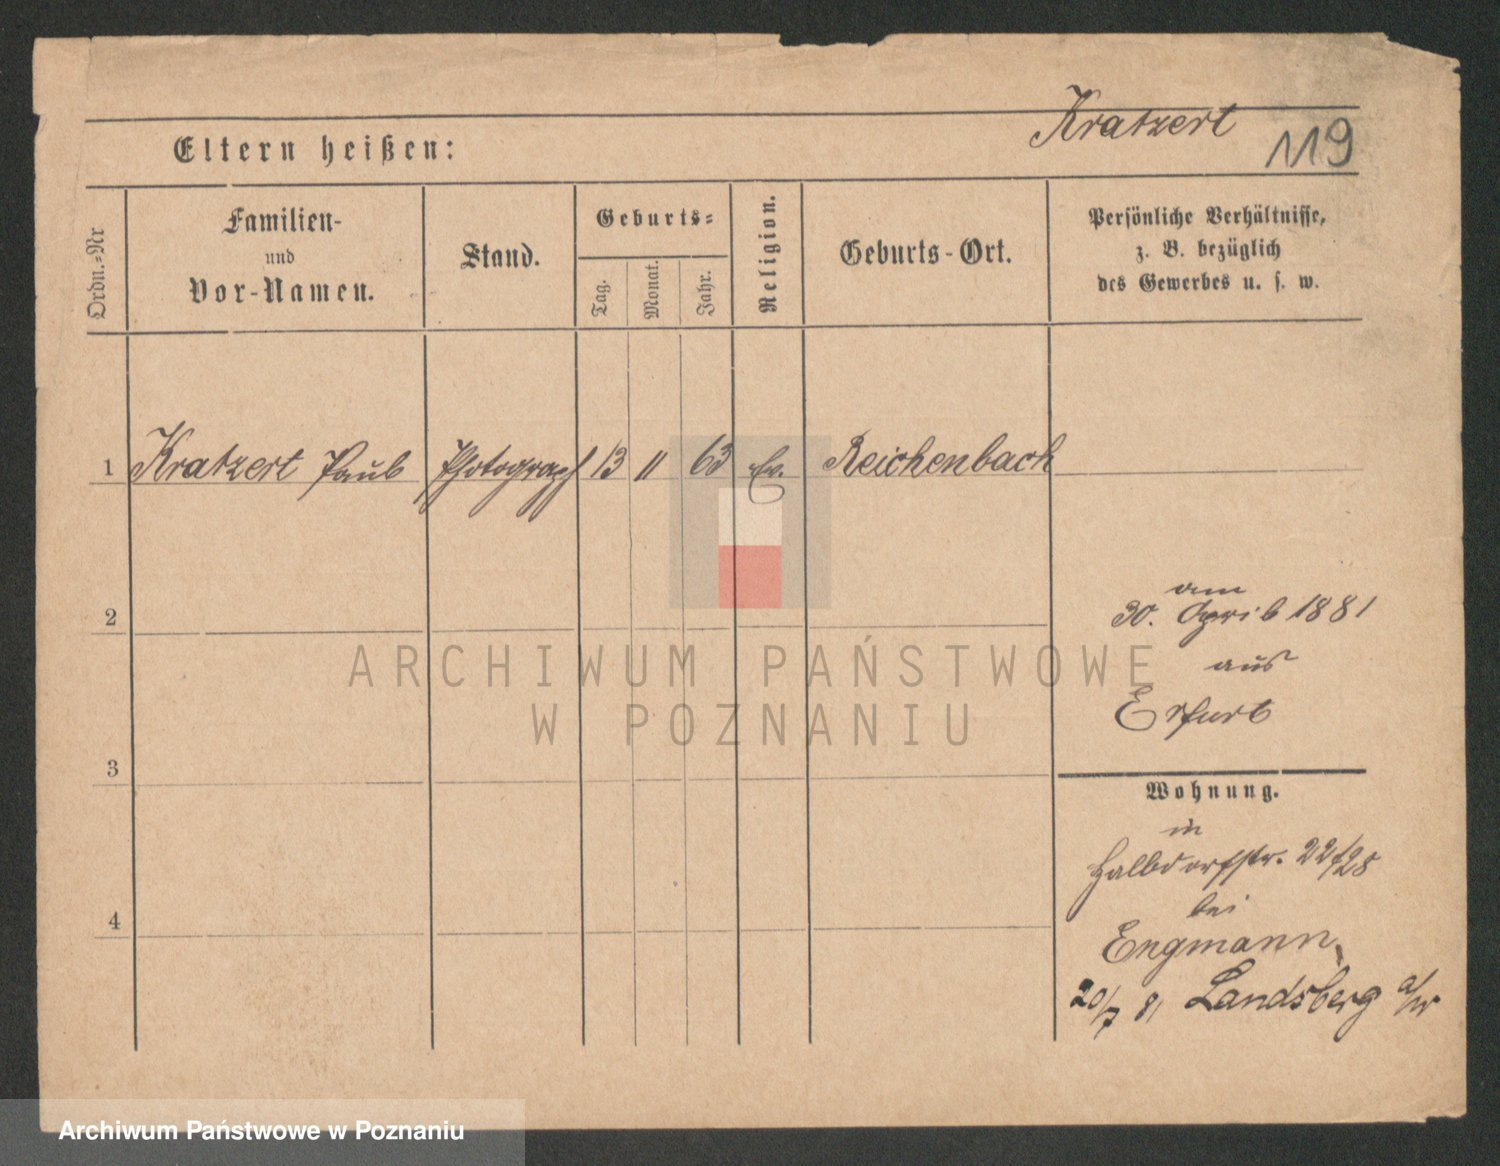 Kratzert
119
Eltern heißen:
Ordn.-Nr
Familien-
und
Vor-Namen.
Stand.
Geburts-
Tag.
Monat.
Jahr.
Religion.
Geburts-Ort.
Persönliche Verhältnisse,
z. B. bezüglich
des Gewerbes u. s. w.
1 Kratzert Paul Photograph 13 11 63 Ev. Reichenbach
2
3
4
am
30. April 1881
aus
Erfurt
Wohnung.
in
Halbdorfstr. 22/28
bei
Engmann
20/7 81 Landsberg a/W
ARCHIWUM PAŃSTWOWE
W POZNANIU
Archiwum Państwowe w Poznaniu